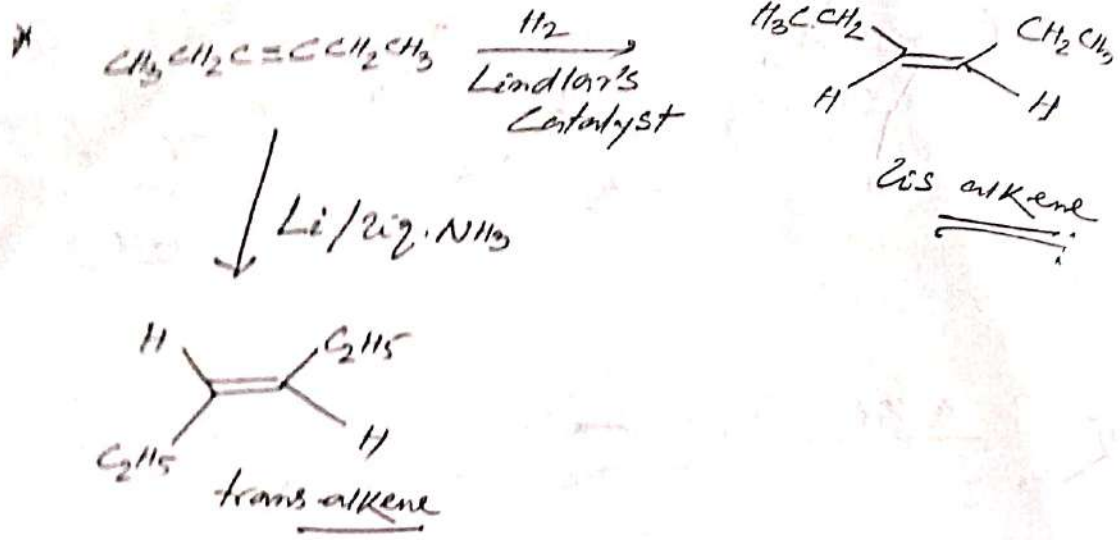 * CH3CH2C≡CCH2CH3 H2 Lindlar's Catalyst
H3C.CH2 CH2CH3
H H
Cis alkene
Li/liq.NH3
H C2H5
C2H5 H
trans alkene